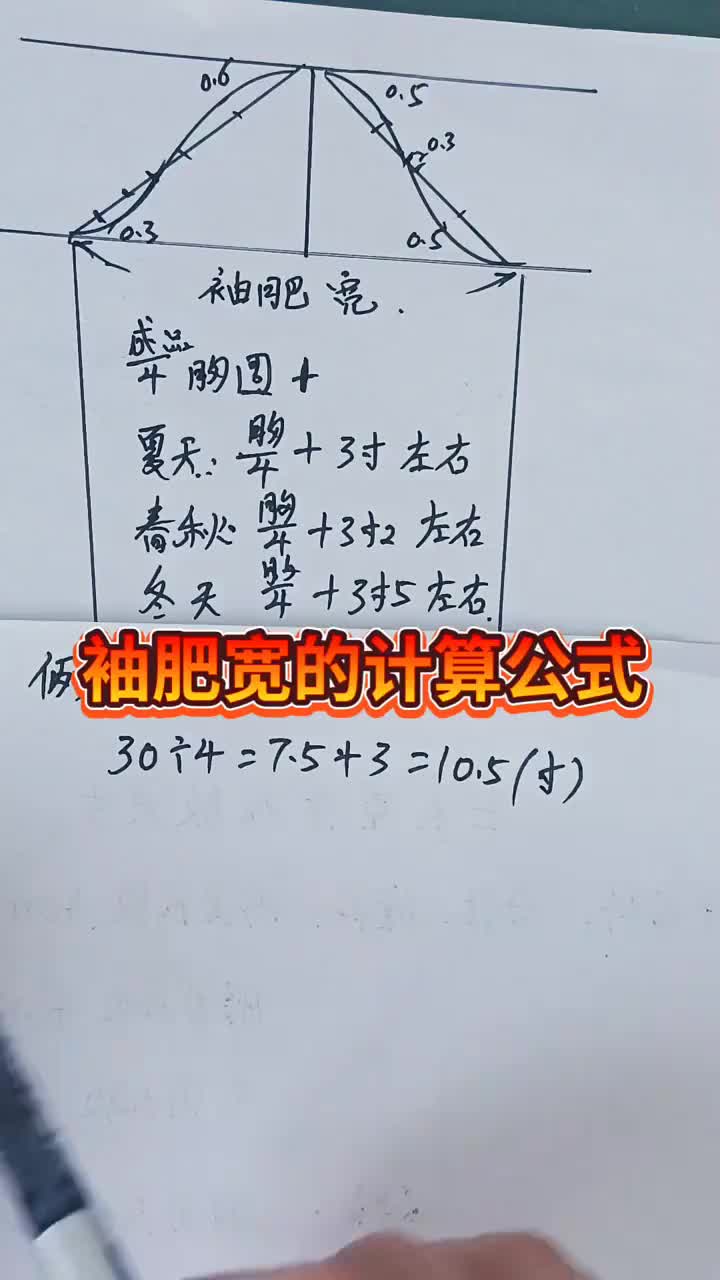 0.6
0.5
0.3
0.3
0.5
袖肥宽.
成品/4 胸围+
夏天: 胸/4+3寸左右
春秋 胸/4+3寸2 左右
冬天 胸/4+3寸5左右.
袖肥宽的计算公式
30÷4=7.5+3=10.5(寸)